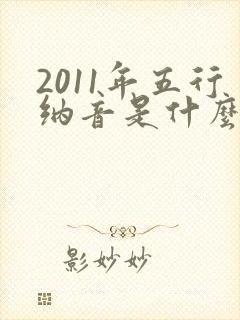 2011年五行
纳音是什麽
影妙妙